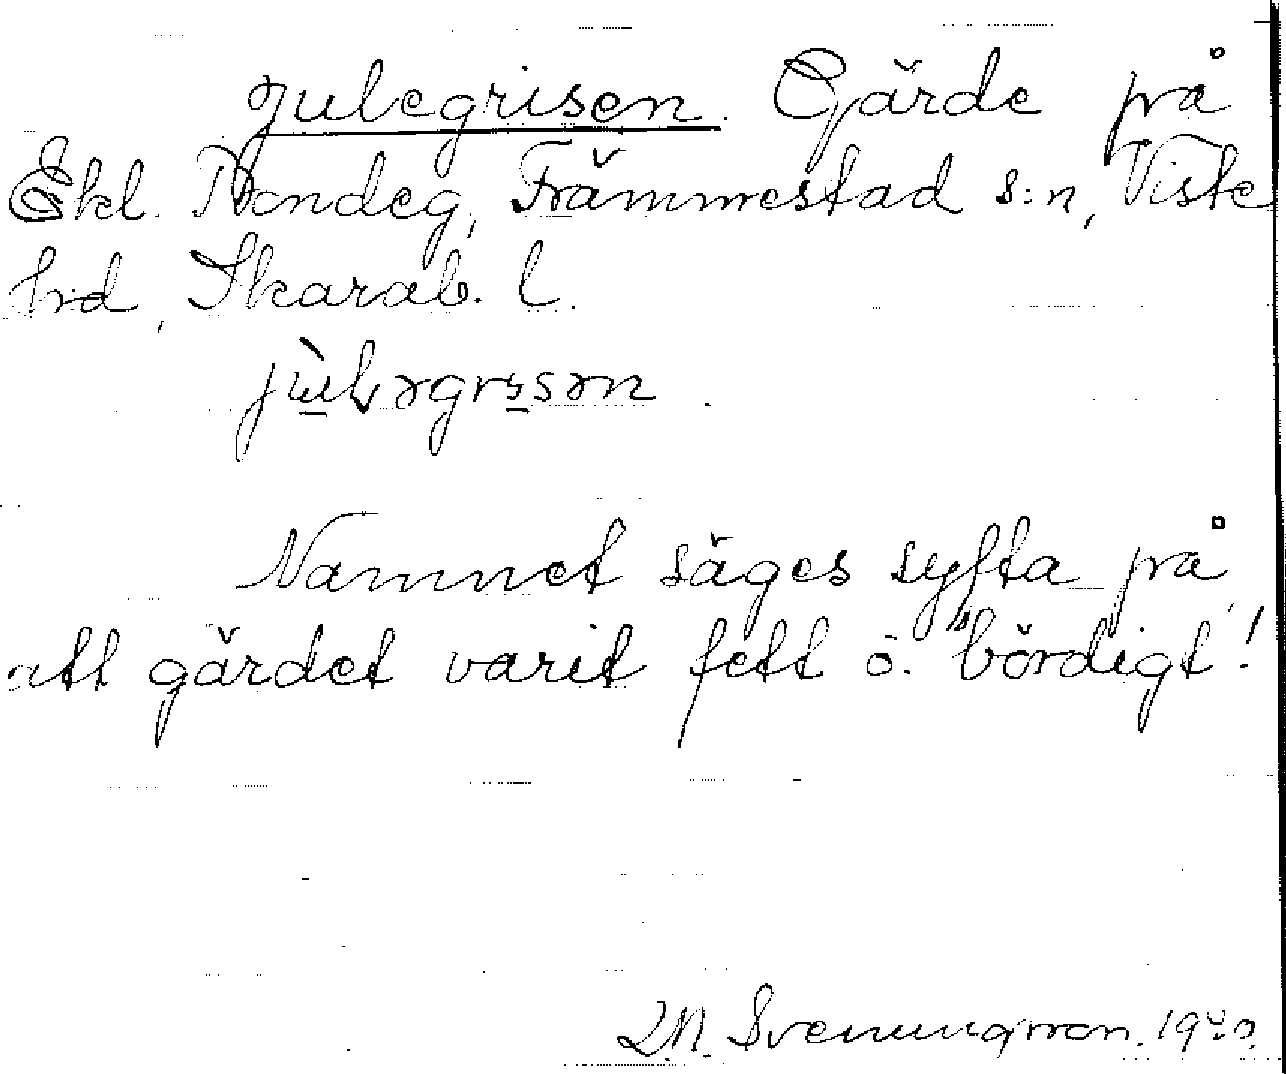 Julegrisen. Gärde på
Ekl. Prondeg, Främmestad s:n, Viste
hrd, Skarab. l.
Namnet säges syfta på,
att gärdet varit fett o. "bördigt"!
Svenungsson. 19